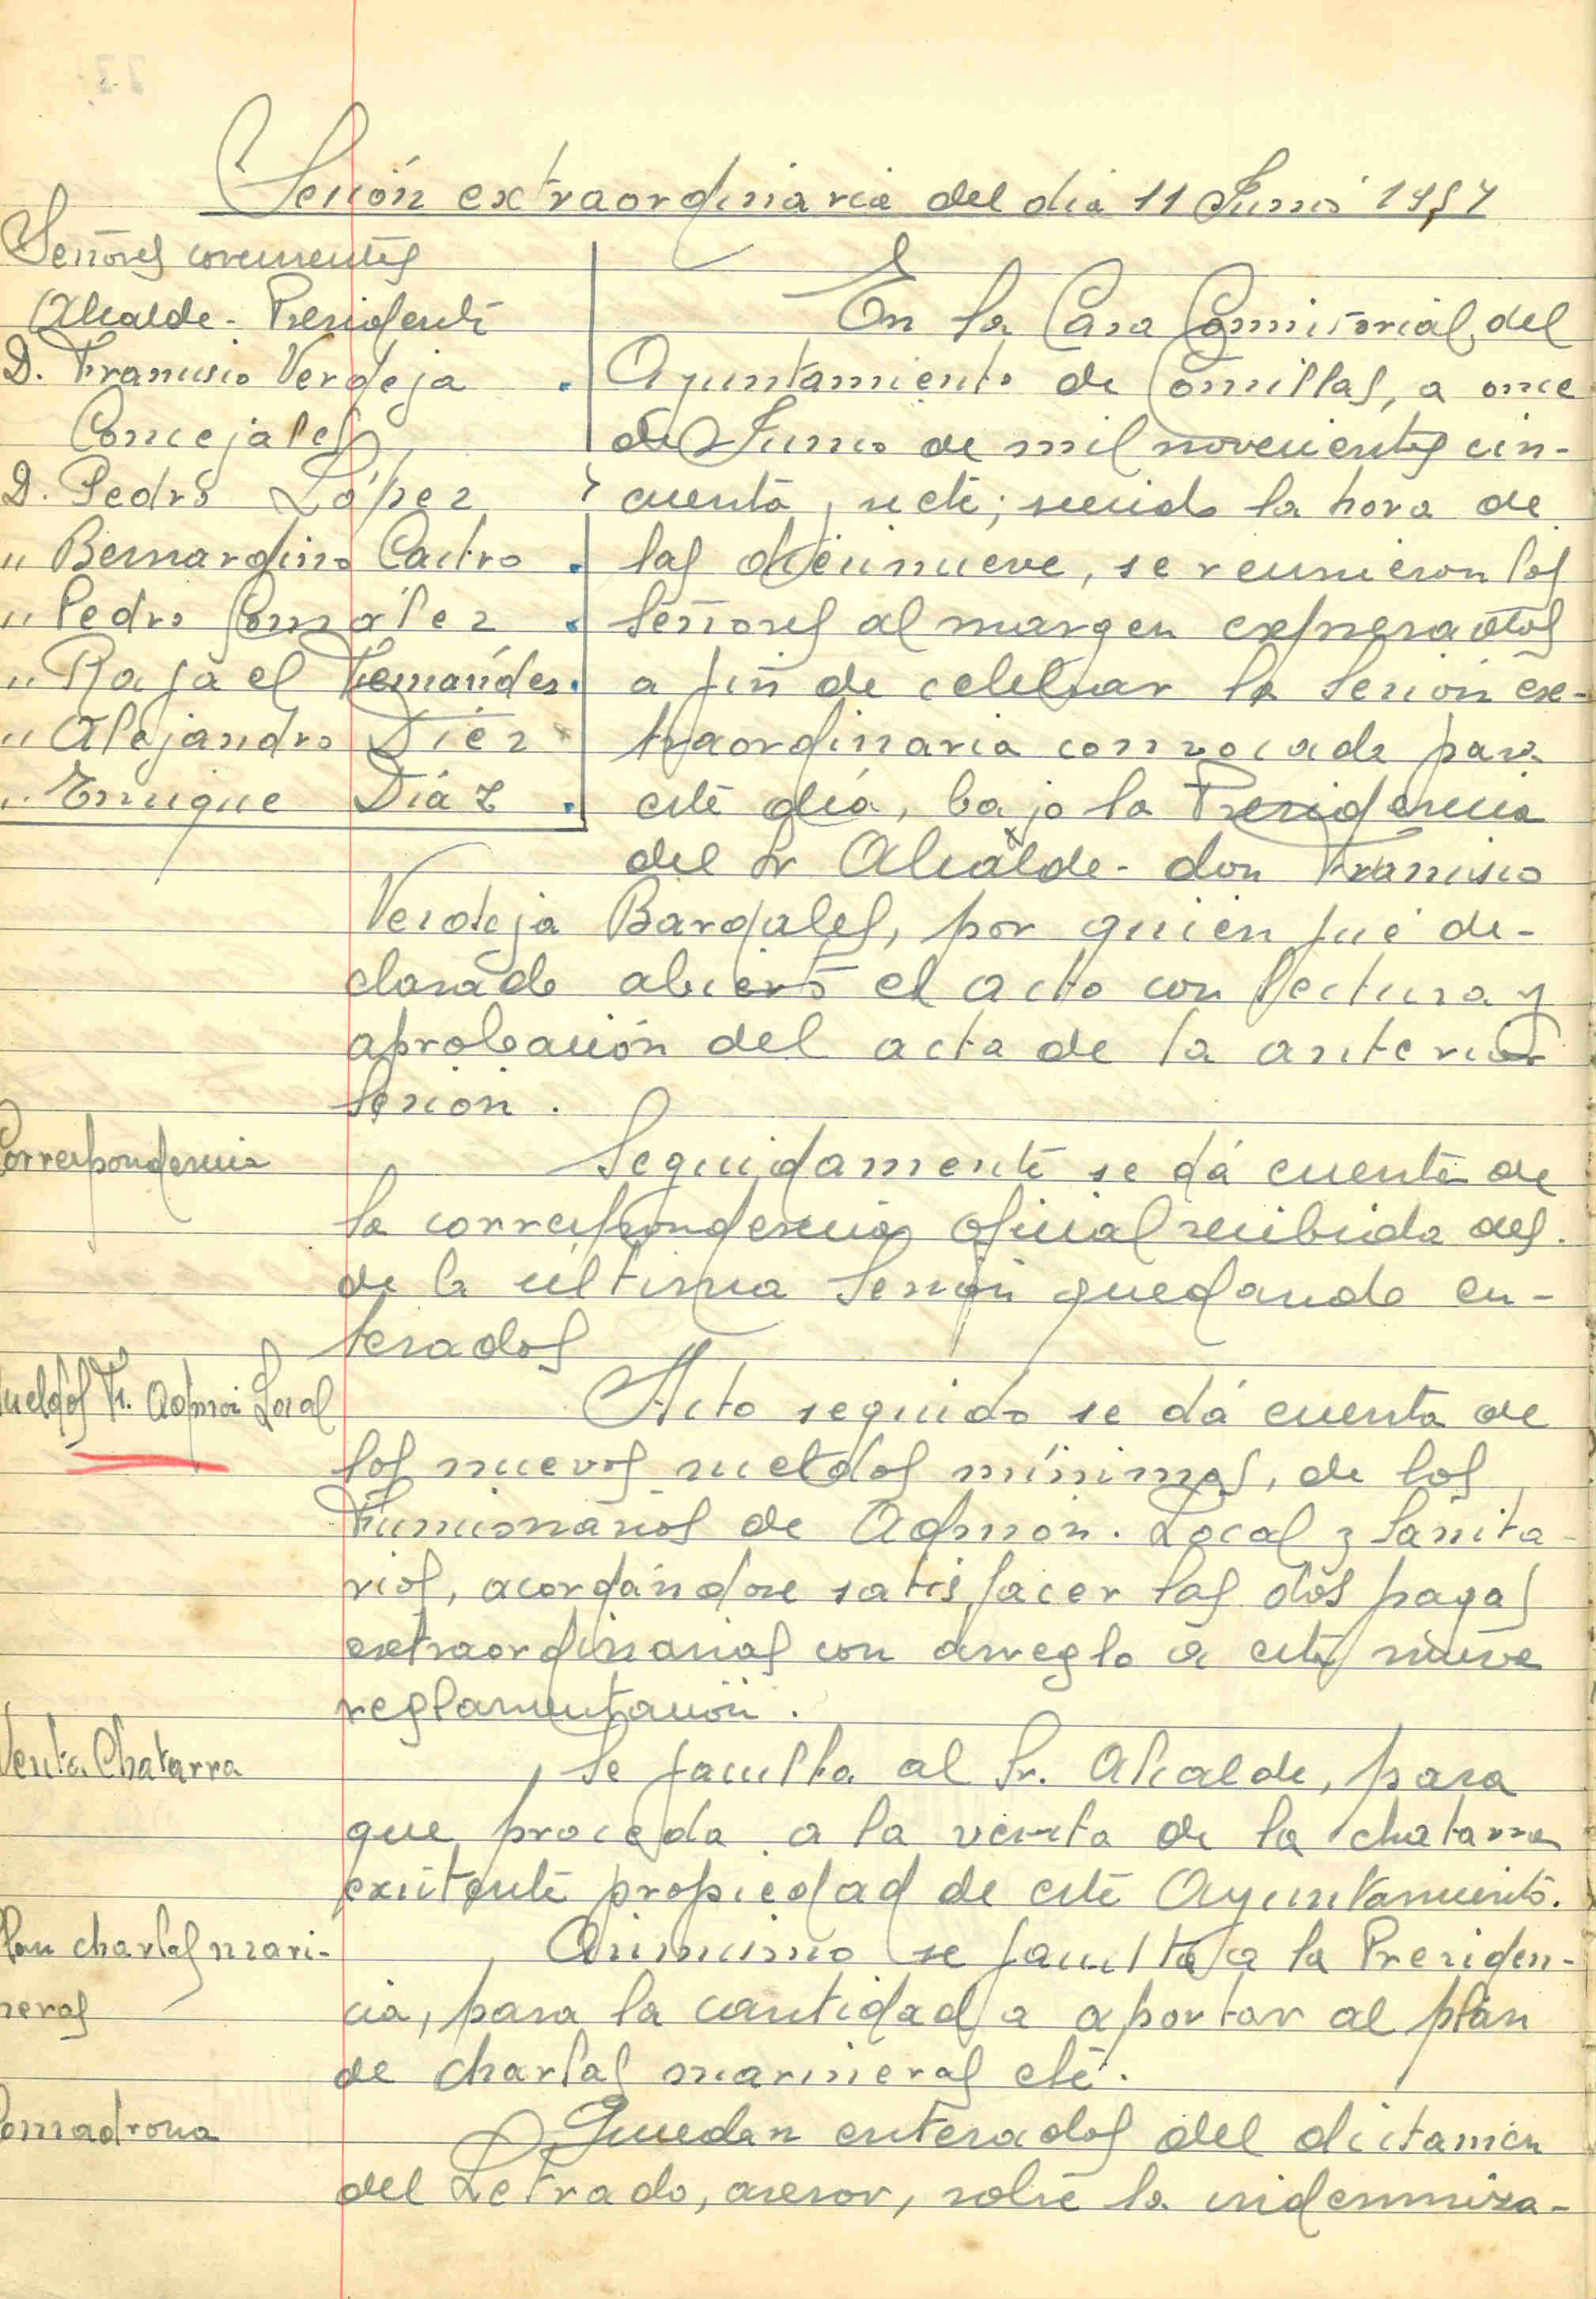 Sesión extraordinaria del dia 11 Junio 1957
Señores concurrentes
Alcalde-Presidente
D. Francisco Verdeja
Concejales
D. Pedro López
" Bernardino Castro
" Pedro González
" Rafael Fernández
" Alejandro Díez
" Enrique Díaz
En la Casa Consistorial del
Ayuntamiento de Comillas, a once
de Junio de mil novecientos cin-
cuenta y siete; siendo la hora de
las diecinueve, se reunieron los
Señores al margen expresados
a fin de celebrar la Sesión ex-
traordinaria convocada para
este día, bajo la Presidencia
del Sr Alcalde- don Francisco
Verdeja Bardales, por quien fué de-
clarado abierto el acto con lectura y
aprobación del acta de la anterior
Sesión.
Correspondencia
Seguidamente se dá cuenta de
la correspondencia oficial recibida des-
de la última Sesión quedando en-
terados
Sueldos F. Admón Local
Acto seguido se dá cuenta de
los nuevos sueldos mínimos, de los
Funcionarios de Admón. Local y Sanita-
rios, acordándose satisfacer las dos pagas
extraordinarias con arreglo a esta nueva
reglamentación.
Venta Chatarra
Se faculta al Sr. Alcalde, para
que proceda a la venta de la chatarra
existente propiedad de este Ayuntamiento.
Plan charlas mari-
neras
Asimismo se faculta a la Presiden-
cia, para la cantidad a aportar al plan
de charlas marineras etc.
Comadrona
Quedan enterados del dictamen
del Letrado, asesor, sobre la indemniza-